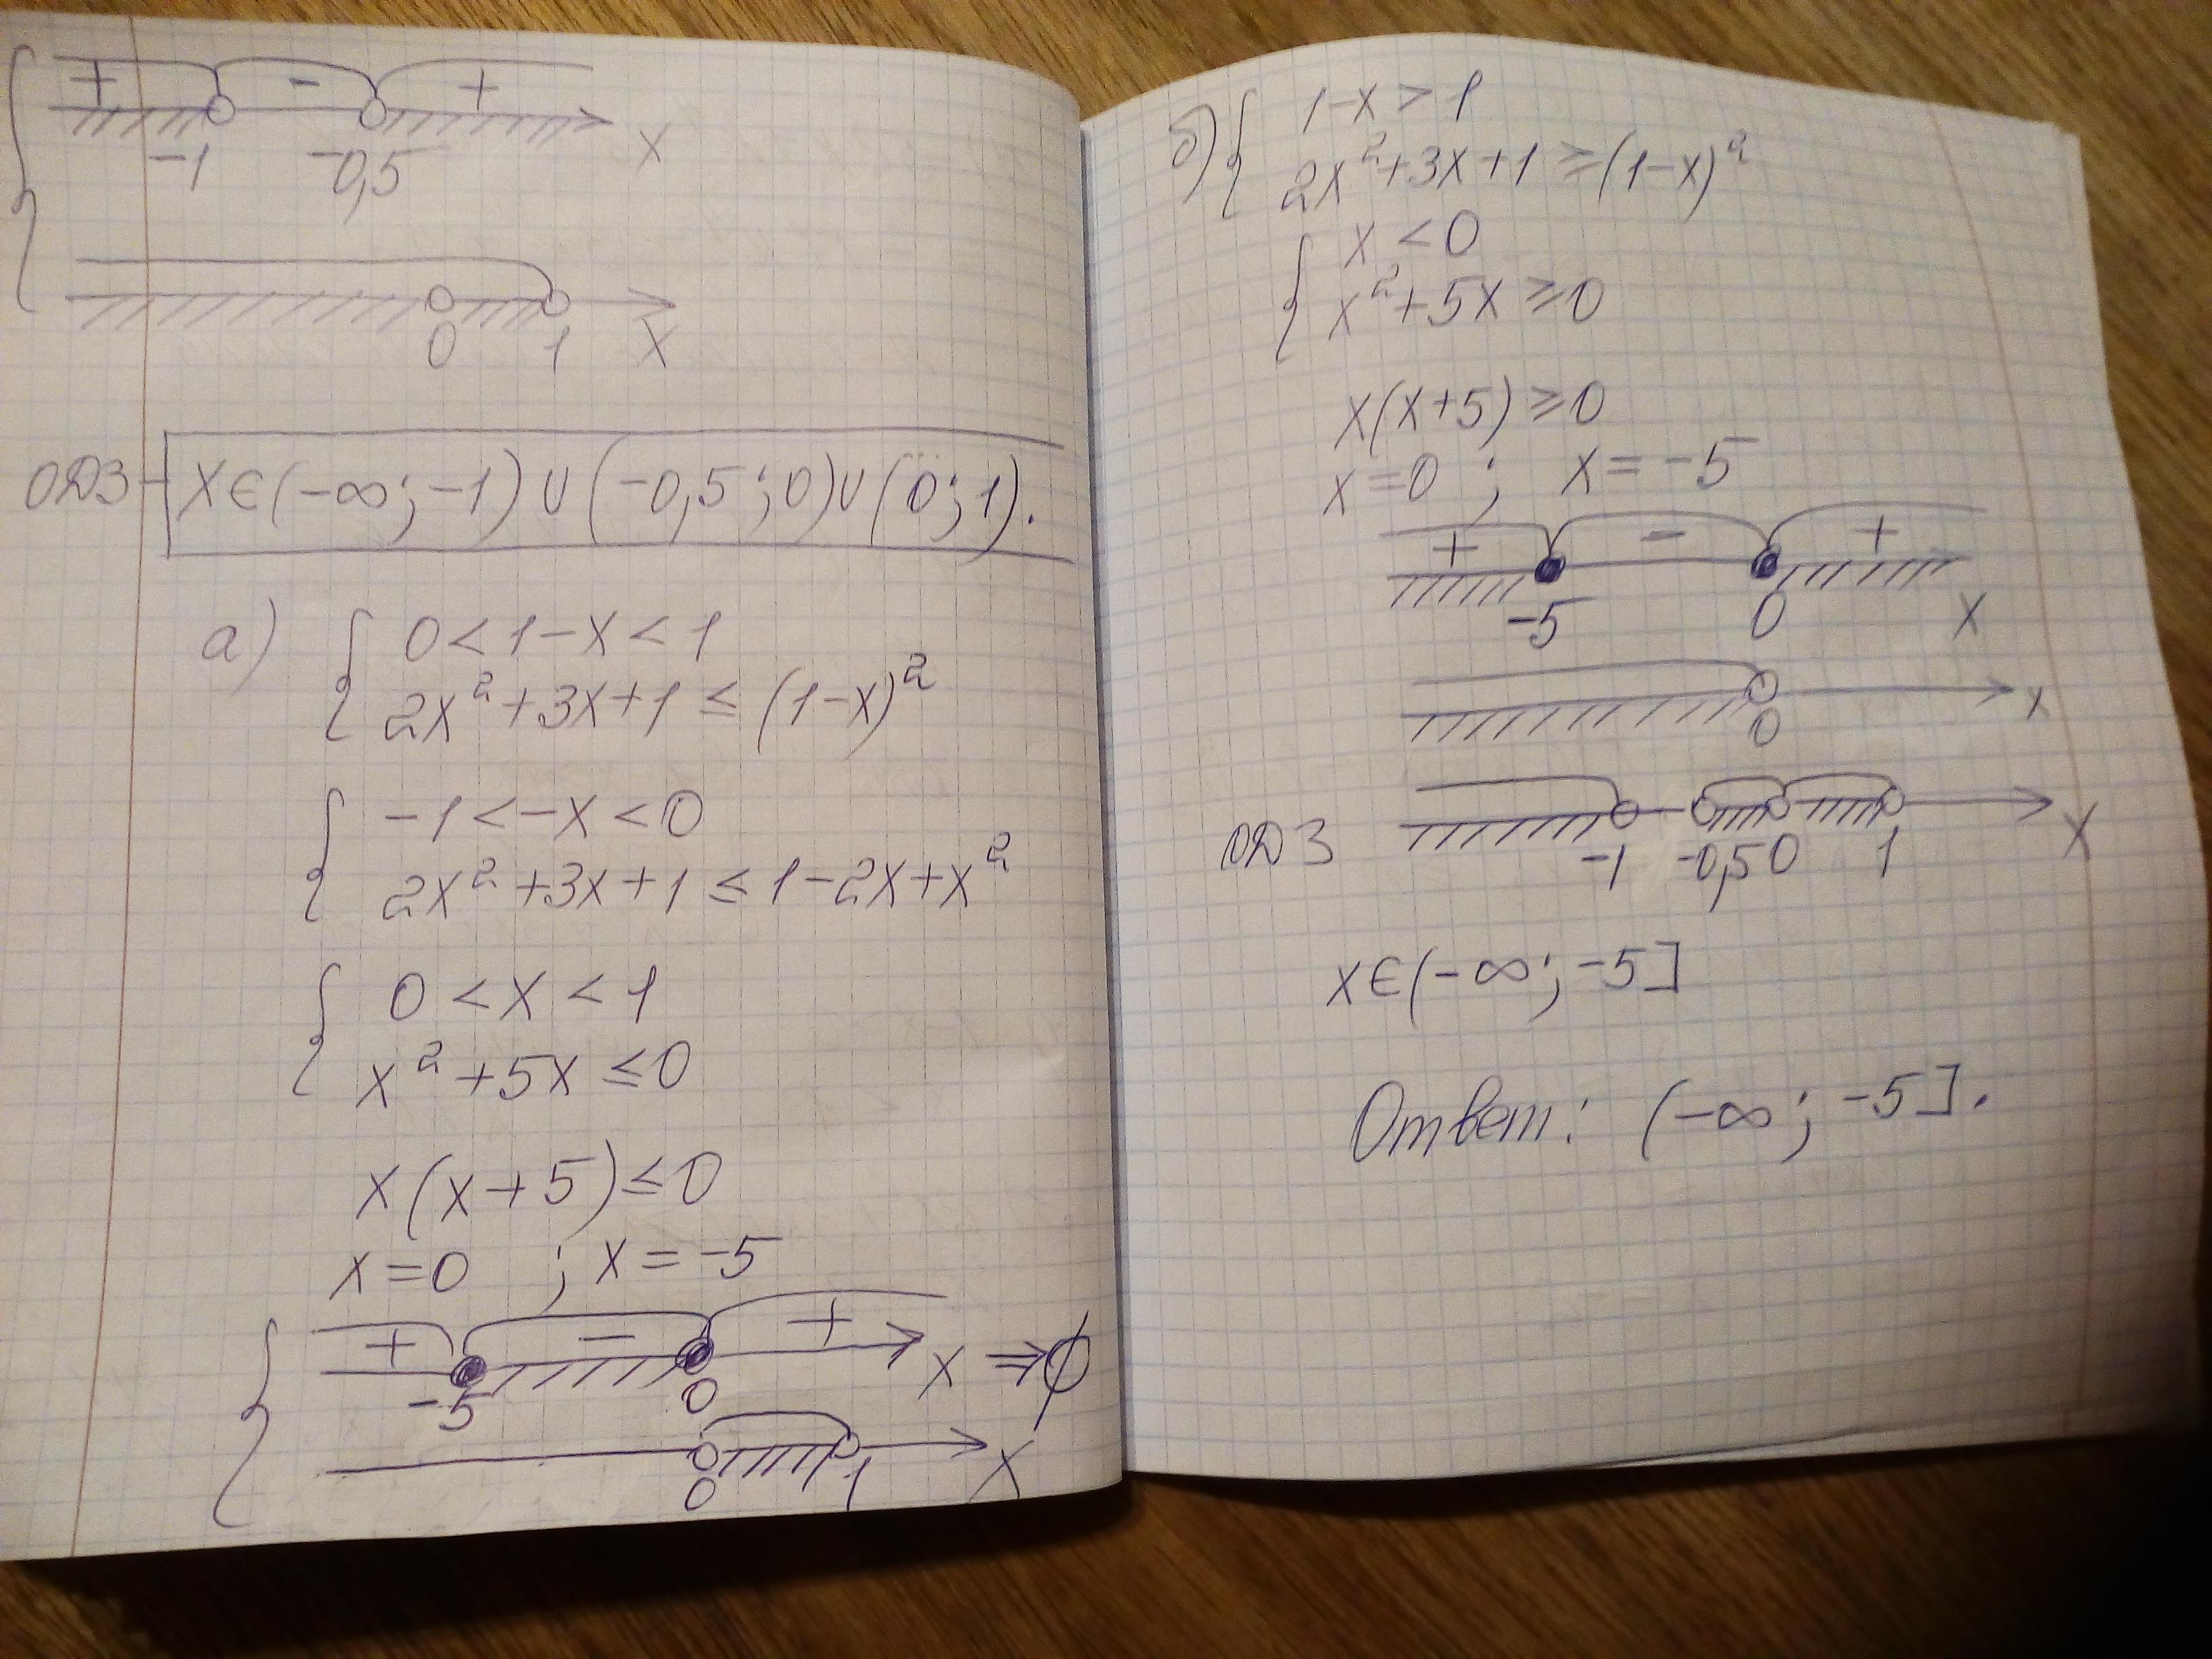 + - +
-1 -0,5 x
0 1 x
ОДЗ x∈(-∞; -1) ∪ (-0,5; 0) ∪ (0; 1).
а) { 0 < 1-x < 1
2x²+3x+1 ≤ (1-x)²
{ -1 < -x < 0
2x²+3x+1 ≤ 1-2x+x²
{ 0 < x < 1
x²+5x ≤ 0
x(x+5) ≤ 0
x=0 ; x=-5
+ - +
-5 0 x ⇒ ∅
0 1 x
б) { 1-x > 1
2x²+3x+1 ≥ (1-x)²
{ x < 0
x²+5x ≥ 0
x(x+5) ≥ 0
x=0 ; x=-5
+ - +
-5 0 x
0 x
ОДЗ -1 -0,5 0 1 x
x∈(-∞; -5]
Ответ: (-∞; -5].